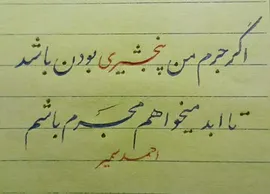 اگر جرم من پنجشیری بودن باشد
تا ابد میخواهم مجرم باشم
احمد سمیر